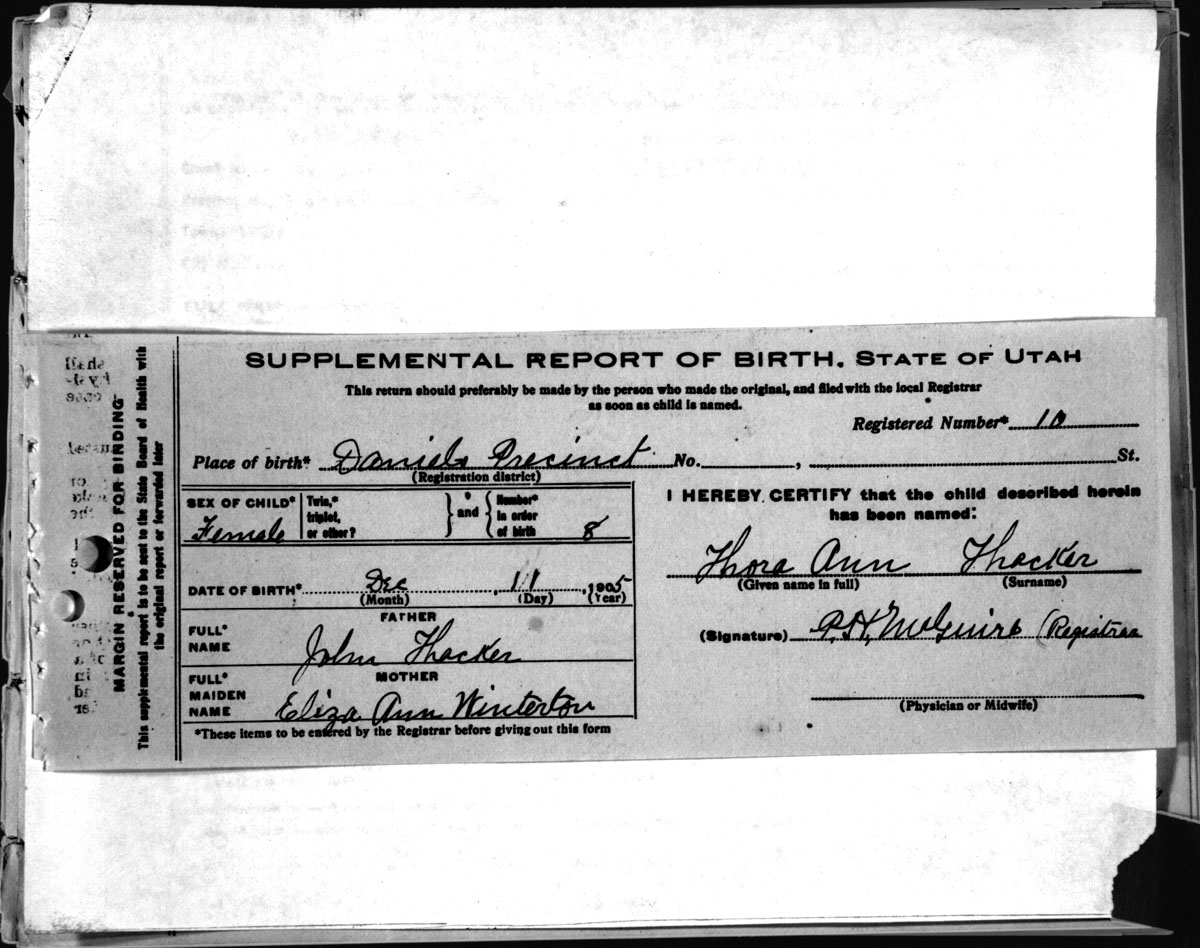 SUPPLEMENTAL REPORT OF BIRTH. STATE OF UTAH
This return should preferably be made by the person who made the original, and filed with the local Registrar
as soon as child is named.
Registered Number* 10
Place of birth* Daniels Precinct No. , St.
(Registration district)
SEX OF CHILD* Female
Twin,* triplet, or other?
and
Number* in order of birth 8
DATE OF BIRTH* Dec 11, 1905
(Month) (Day) (Year)
FATHER
FULL* NAME John Thacker
MOTHER
FULL* MAIDEN NAME Eliza Ann Winterton
*These items to be entered by the Registrar before giving out this form
I HEREBY CERTIFY that the child described herein
has been named:
Thora Ann Thacker
(Given name in full) (Surname)
(Signature) P.H. McGuire (Registrar
(Physician or Midwife)
MARGIN RESERVED FOR BINDING
This supplemental report is to be sent to the State Board of Health with
the original report or forwarded later